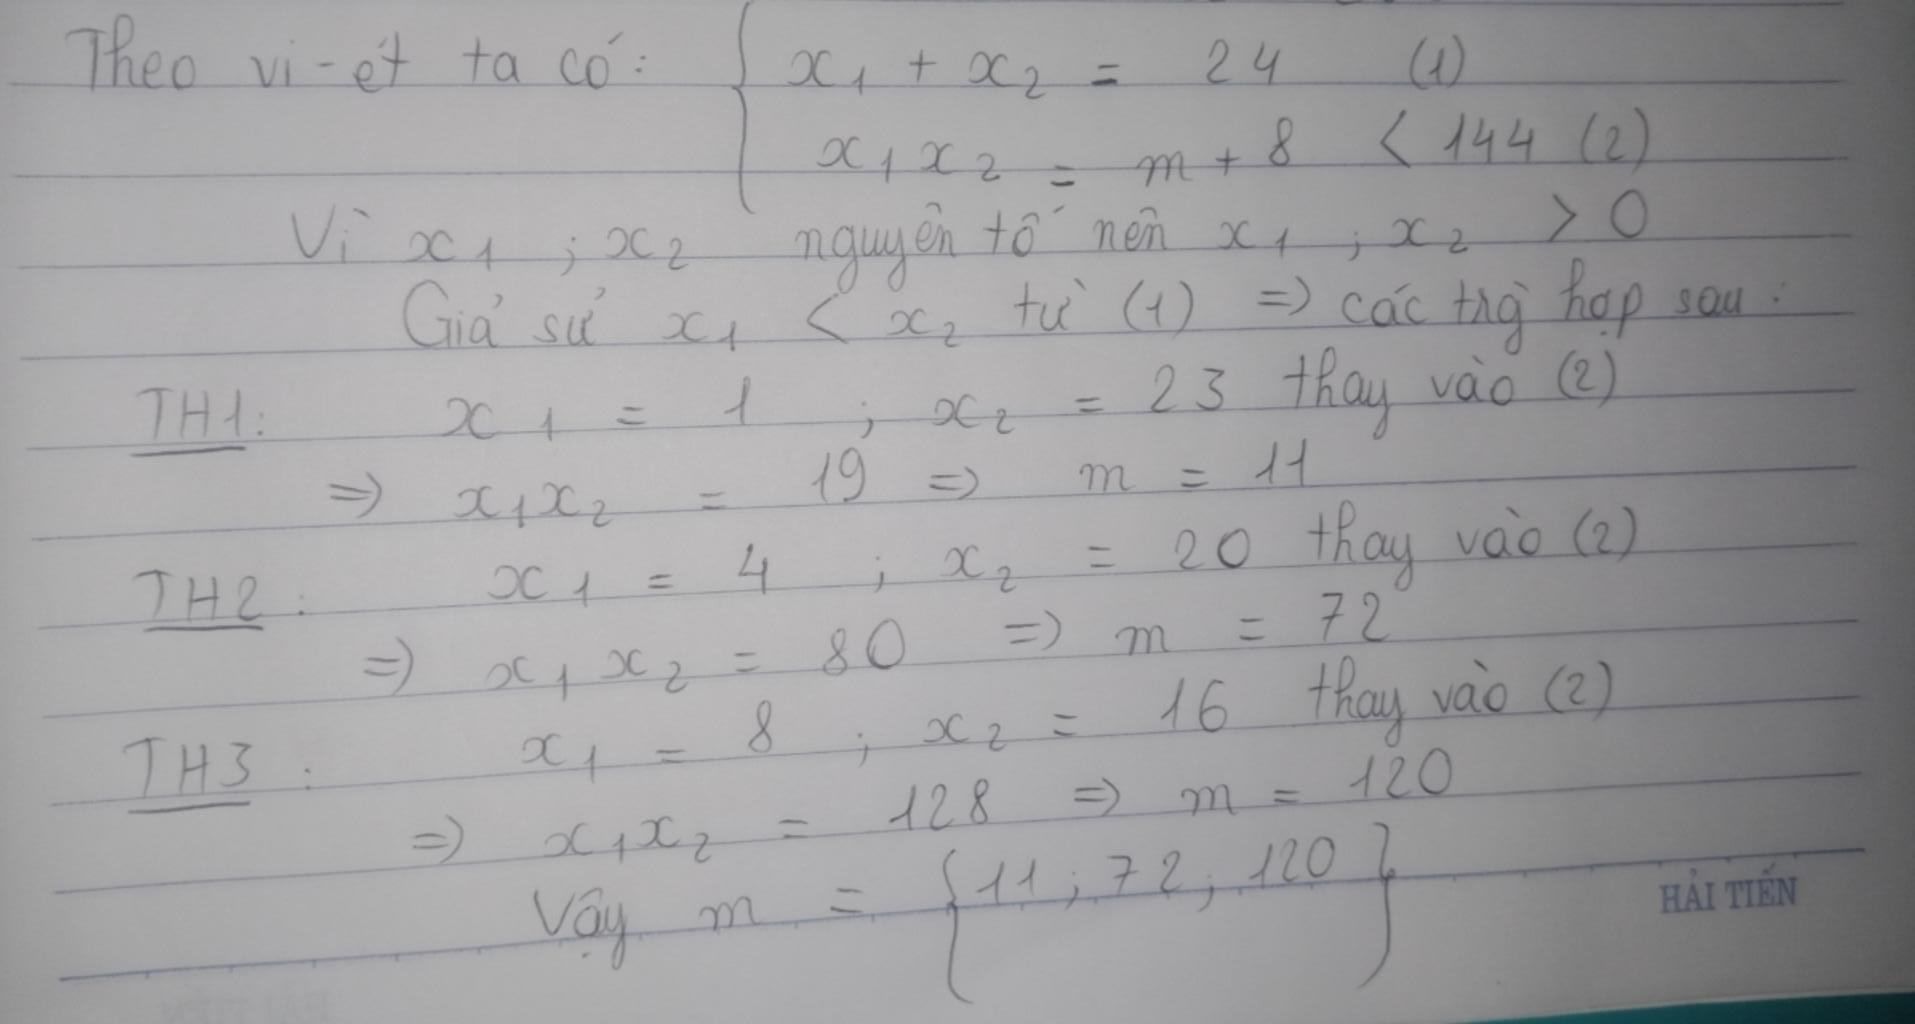 Theo vi-ét ta có: { x₁ + x₂ = 24 (1)
x₁x₂ = m + 8 < 144 (2)
Vì x₁ ; x₂ nguyên tố nên x₁ ; x₂ > 0
Giả sử x₁ < x₂ từ (1) => các trg hợp sau :
TH1: x₁ = 1 ; x₂ = 23 thay vào (2)
=> x₁x₂ = 19 => m = 11
TH2 : x₁ = 4 ; x₂ = 20 thay vào (2)
=> x₁x₂ = 80 => m = 72
TH3 : x₁ = 8 ; x₂ = 16 thay vào (2)
=> x₁x₂ = 128 => m = 120
Vậy m = {11 ; 72 ; 120}
HẢI TIẾN